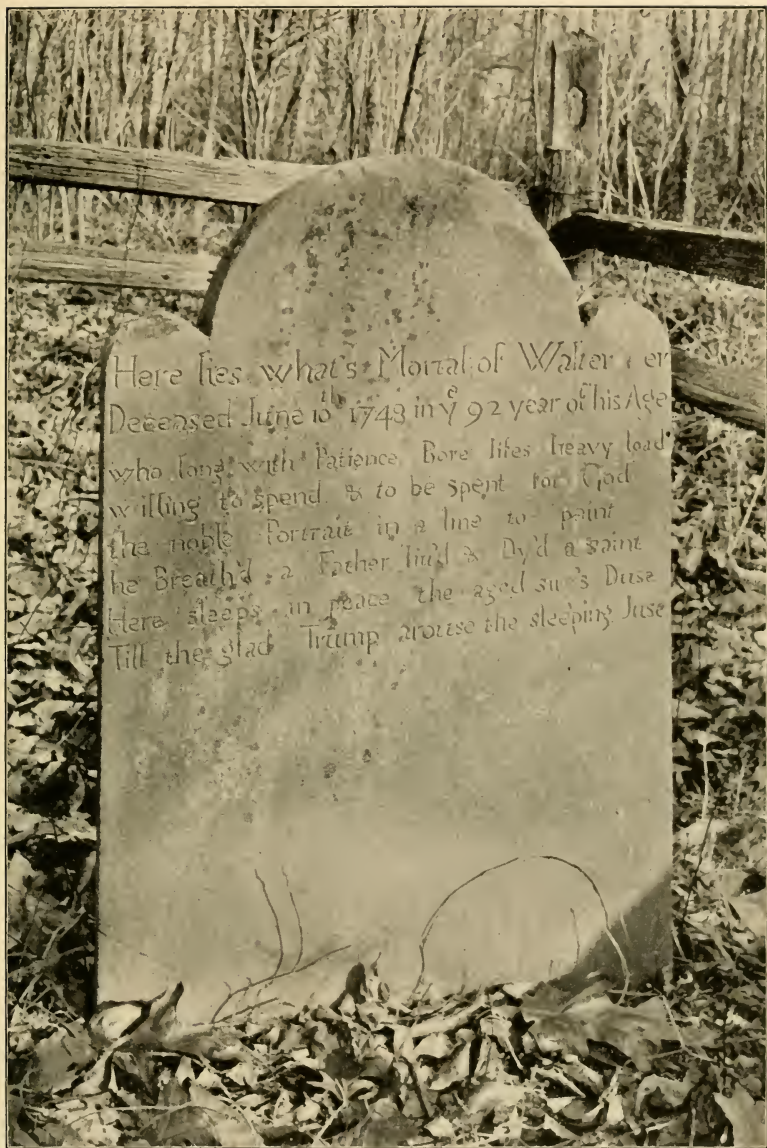 Here lies what's Mortal of Walter er
Deceased June 10th 1743 in ye 92 year of his Age
who long with Patience Bore lifes heavy load
willing to spend & to be spent for God
the noble Portrait in a line to paint
he Breath'd a Father liv'd & Dy'd a saint
Here sleeps in peace the aged sire's Dust
Till the glad Trump arouse the sleeping Just